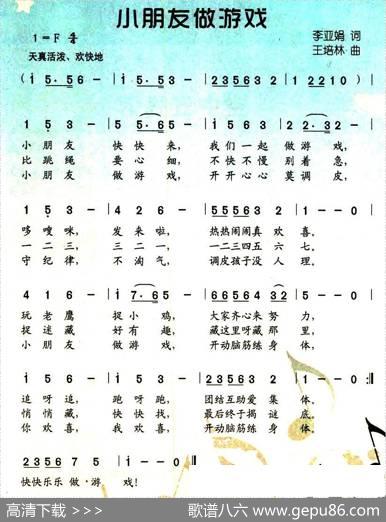 小朋友做游戏
1=F 4/4
李亚娟 词
天真活泼、欢快地
王培林 曲
(i 5·5 56 - | i 5·5 3 - | 2 3 5 6 3 2 | 1 2 2 0 2 )
1 5 3 - | 5 5·6 5 - | 5 5 5 6 3 | 2 2·3 2 -
小朋友 快快来, 我们一起 做游戏,
比跳绳 要心细, 不快不慢 别着急,
小朋友 做游戏, 开开心心 莫调皮,
1 5 3 - | 4 2 6 - | 5 5 5 6 3 2 | 1 5 3 -
哆嗖咪, 发来啦, 热热闹闹真欢喜,
一二三, 二三一, 一二三四五六七,
守纪律, 不淘气, 调皮孩子没人理,
4 1 6 - | i 7·6 5 - | 6 6 5 6 4 | 3 3 2 5 -
玩老鹰 捉小鸡, 大家齐心来努力,
捉迷藏 好有趣, 藏这里呀藏那里,
小朋友 做游戏, 开动脑筋练身体,
i 5 6 - | i 5 3 - | 2 3 5 6 3 2 | i - 0 0 :|
追呀追, 跑呀跑, 团结互助爱集体。
悄悄藏, 快快找, 最后终于揭谜底。
你欢喜, 我欢喜, 开动脑筋练身体。
2 3 5 6 7 5 | i - - - | i - 0 0 ‖
快快乐乐做·游戏!
高清下载 >>>
歌谱八六 www.gepu86.com